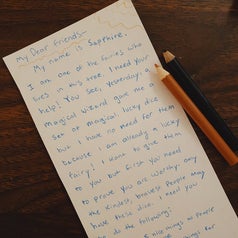 My Dear Friends-
My name is Sapphire.
I am one of the fairies who
lives in this tree. I need your
help! You see, yesterday, a
magical wizard gave me a
set of magical, lucky dice
but I have no need for them
because I am already a lucky
fairy! I want to give them
to you but first you need
to prove you are worthy. Only
the kindest, bravest people may
have these dice. I need you
do the following:
nice things